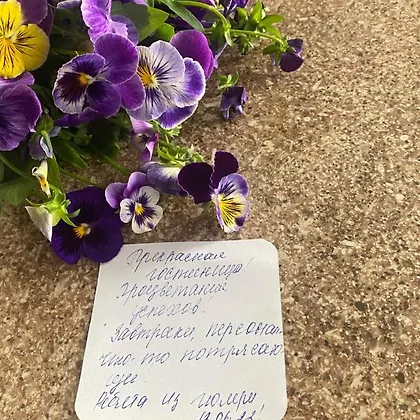 Прекрасная
гостиница!
Процветания
успехов!
Завтраки, персонал-
что-то потрясаю-
щее
из номера